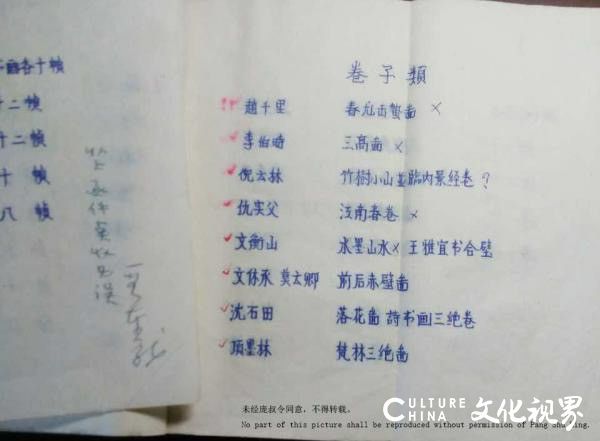 各十幀
十二幀
十二幀
十幀
八幀
卷子類
趙千里 春龙出蛰啚 ×
李伯時 三高啚 ×
倪云林 竹樹小山並臨内景经卷?
仇实父 江南春卷 ×
文衡山 水墨山水× 王雅宜书合壁
文休承 莫云卿 前后赤壁啚
沈石田 落花啚 詩书画三绝卷
項墨林 梵林三绝啚
未经庞叔令同意,不得转载。
No part of this picture shall be reproduced without permission of Pang Shu Ling.
CULTURE CHINA 文化视界